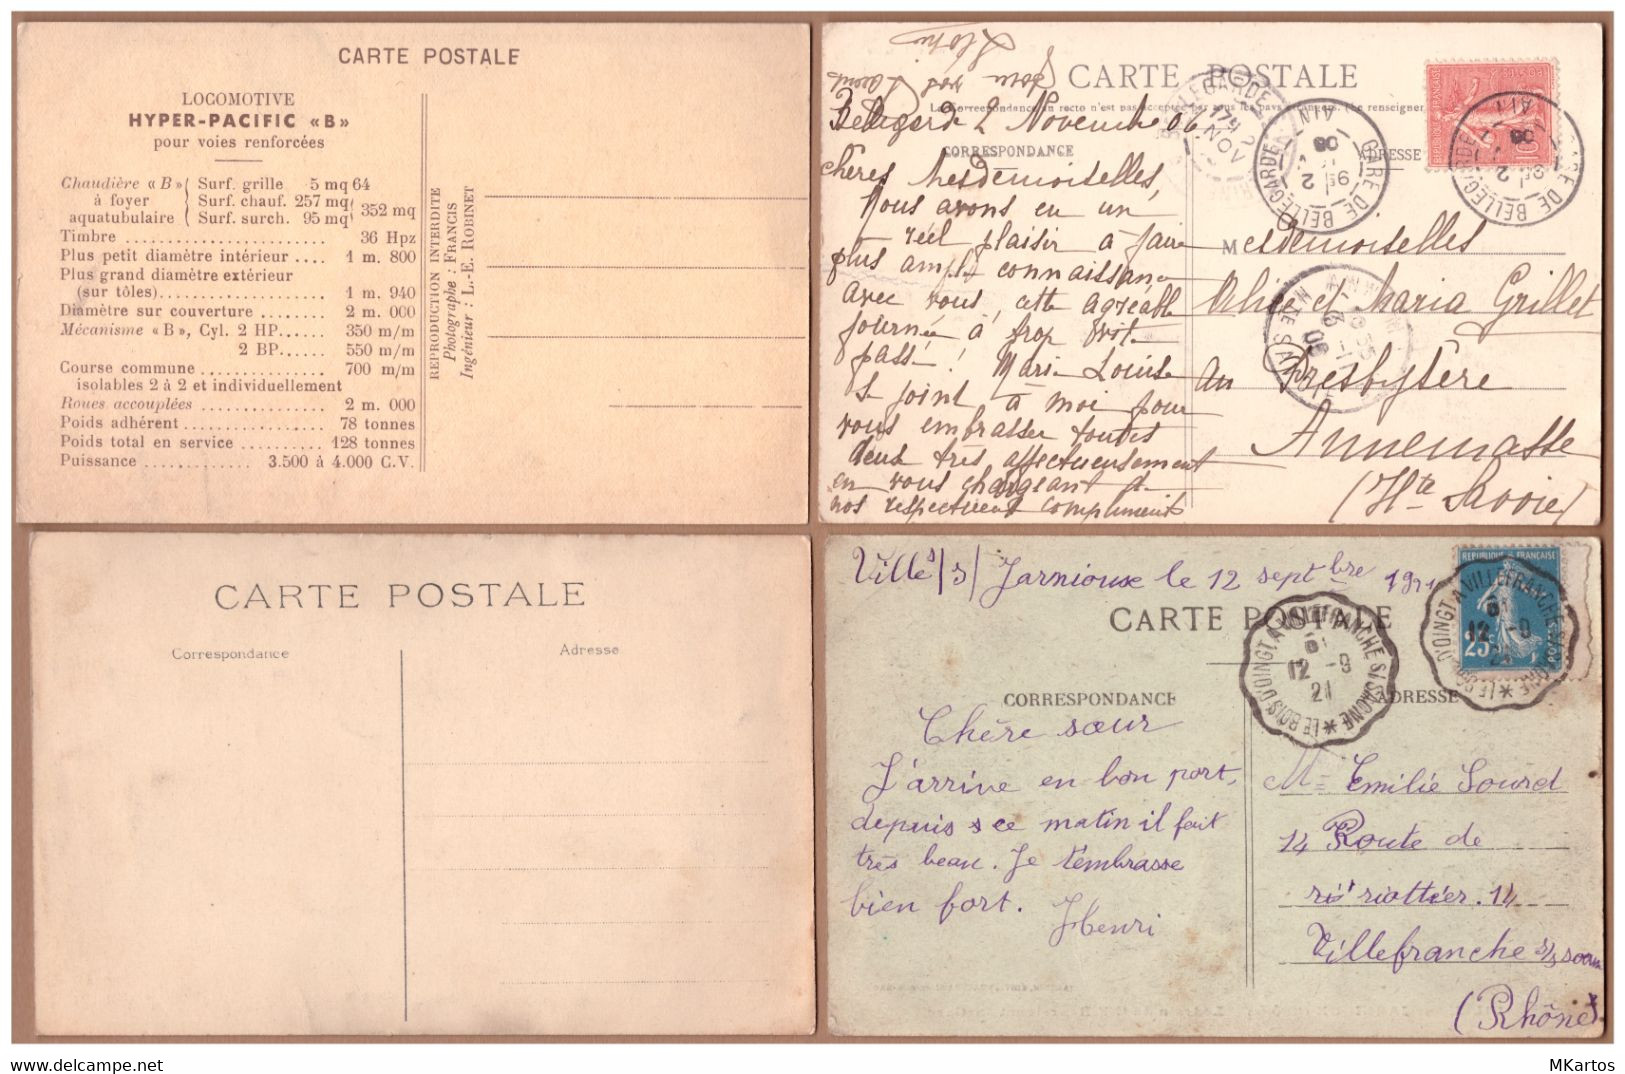 CARTE POSTALE
LOCOMOTIVE
HYPER-PACIFIC «B»
pour voies renforcées
Chaudière «B» Surf. grille 5 mq 64
à foyer Surf. chauf. 257 mq 352 mq
aquatubulaire Surf. surch. 95 mq
Timbre ........ 36 Hpz
Plus petit diamètre intérieur .... 1 m. 800
Plus grand diamètre extérieur
(sur tôles)........ 1 m. 940
Diamètre sur couverture ....... 2 m. 000
Mécanisme «B», Cyl. 2 HP...... 350 m/m
2 BP...... 550 m/m
Course commune ........ 700 m/m
isolables 2 à 2 et individuellement
Roues accouplées ........ 2 m. 000
Poids adhérent ........ 78 tonnes
Poids total en service .......... 128 tonnes
Puissance ............ 3.500 à 4.000 C.V.
REPRODUCTION INTERDITE
Photographe : FRANCIS
Ingénieur : L.-E. ROBINET
CARTE POSTALE
La Correspondance au recto n'est pas acceptée par tous les pays étrangers. (Se renseigner
CORRESPONDANCE
ADRESSE
Bellegarde 2 Novembre 06
chères Mesdemoiselles,
Nous avons eu un
réel plaisir à faire
plus ample connaissance
avec vous, cette agréable
journée à trop vite
passé! Marie Louise
se joint à moi pour
vous embrasser toutes
deux très affectueusement
en vous chargeant de
nos respectueux compliments
pour vos
Mesdemoiselles
Alice et Maria Grillet
au Presbytère
Annemasse
(Hte Savoie)
REPUBLIQUE FRANÇAISE
POSTES
10
GARE DE BELLEGARDE
AIN
2
06
GARE DE BELLEGARDE
AIN
2
NOV
CARTE POSTALE
Correspondance
Adresse
Ville s/s/ Jarnioux le 12 septbre 1921
CARTE POSTALE
CORRESPONDANCE
ADRESSE
Chère sœur
J'arrive en bon port,
depuis ce matin il fait
très beau. Je t'embrasse
bien fort.
Henri
Emilie Sourd
14 Route de
riottier. 14
Villefranche s/saone
(Rhône)
REPUBLIQUE FRANÇAISE
25
POSTES
LE BOIS-D'OINGT A VILLEFRANCHE S/SAONE
12 -9
21
LE BOIS-D'OINGT A VILLEFRANCHE S/SAONE
12 -9
21
delcampe.net
MKartos